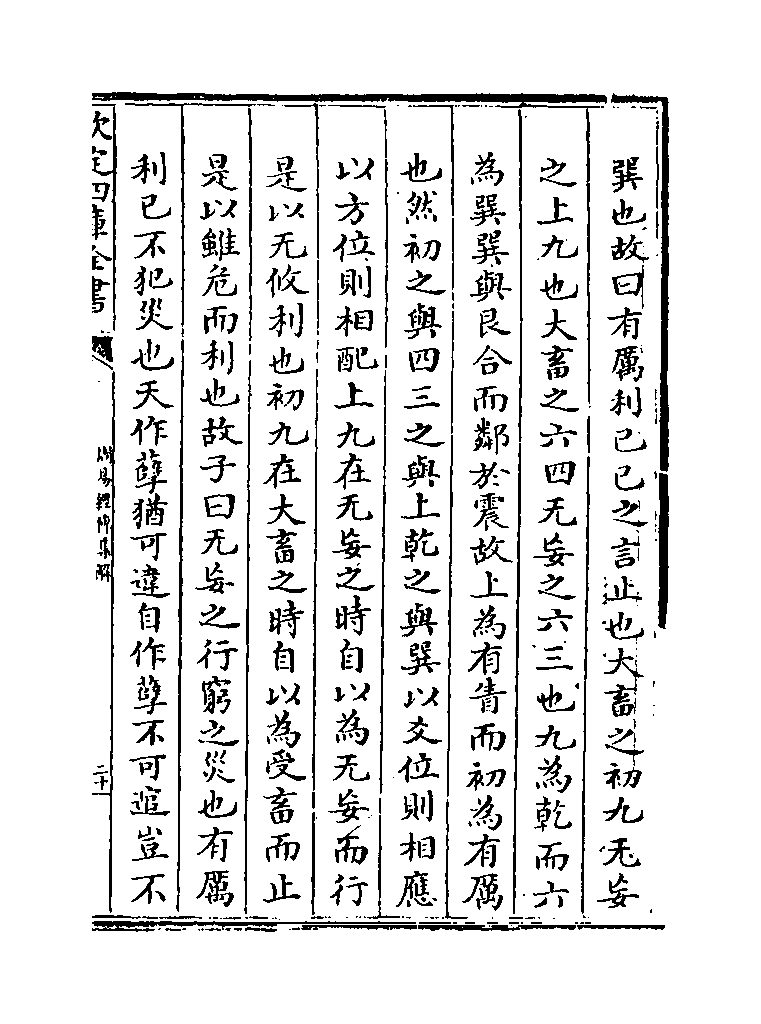 巽也故曰有厲利已已之言止也大畜之初九无妄
之上九也大畜之六四无妄之六三也九為乾而六
為巽巽與艮合而鄰於震故上為有眚而初為有厲
也然初之與四三之與上乾之與巽以爻位則相應
以方位則相配上九在无妄之時自以為无妄而行
是以无攸利也初九在大畜之時自以為受畜而止
是以雖危而利也故子曰无妄之行窮之災也有厲
利已不犯災也天作孽猶可違自作孽不可逭豈不
欽定四庫全書
周易經傳集解
二十一